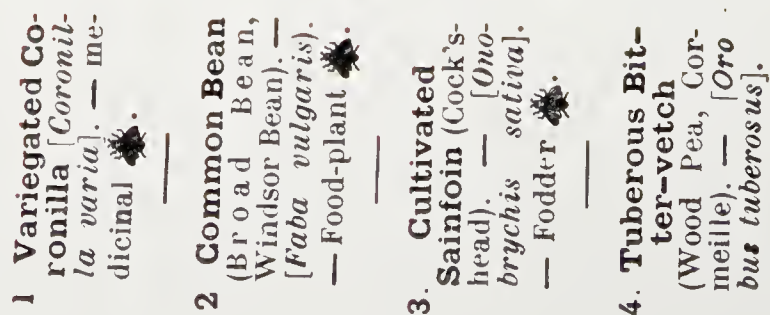 1 Variegated Co-
ronilla [Coronil-
la varia]. — me-
dicinal .
2 Common Bean
(Broad Bean,
Windsor Bean). —
[Faba vulgaris).
— Food-plant .
3. Cultivated
Sainfoin (Cock's-
head). — [Ono-
brychis sativa].
— Fodder .
4. Tuberous Bit-
ter-vetch
(Wood Pea, Cor-
meille). — [Oro
bus tuberosus].